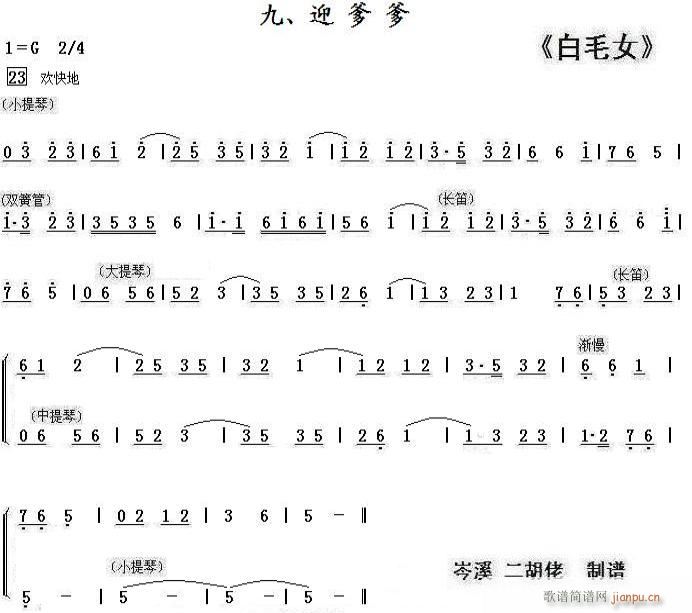 九、迎 爹 爹
1=G 2/4
《白毛女》
23 欢快地
(小提琴)
0 3 2 3 | 6 1 2 | 2 5 3 5 | 3 2 1 | 1 2 1 2 | 3· 5 3 2 | 6 6 1 | 7 6 5 |
(双簧管) (长笛)
1· 3 2 3 | 3 5 3 5 6 | 1· 1 6 1 6 1 | 5 6 1 | 1 2 1 2 | 3· 5 3 2 | 6 6 1 |
(大提琴) (长笛)
7 6 5 | 0 6 5 6 | 5 2 3 | 3 5 3 5 | 2 6 1 | 1 3 2 3 | 1 7 6 | 5 3 2 3 |
渐慢
6 1 2 | 2 5 3 5 | 3 2 1 | 1 2 1 2 | 3· 5 3 2 | 6 6 1 |
(中提琴)
0 6 5 6 | 5 2 3 | 3 5 3 5 | 2 6 1 | 1 3 2 3 | 1· 2 7 6 |
7 6 5 | 0 2 1 2 | 3 6 | 5 — ‖
(小提琴)
5 — | 5 — | 5 — | 5 — ‖
岑溪 二胡佬 制谱
歌谱简谱网
jianpu.cn